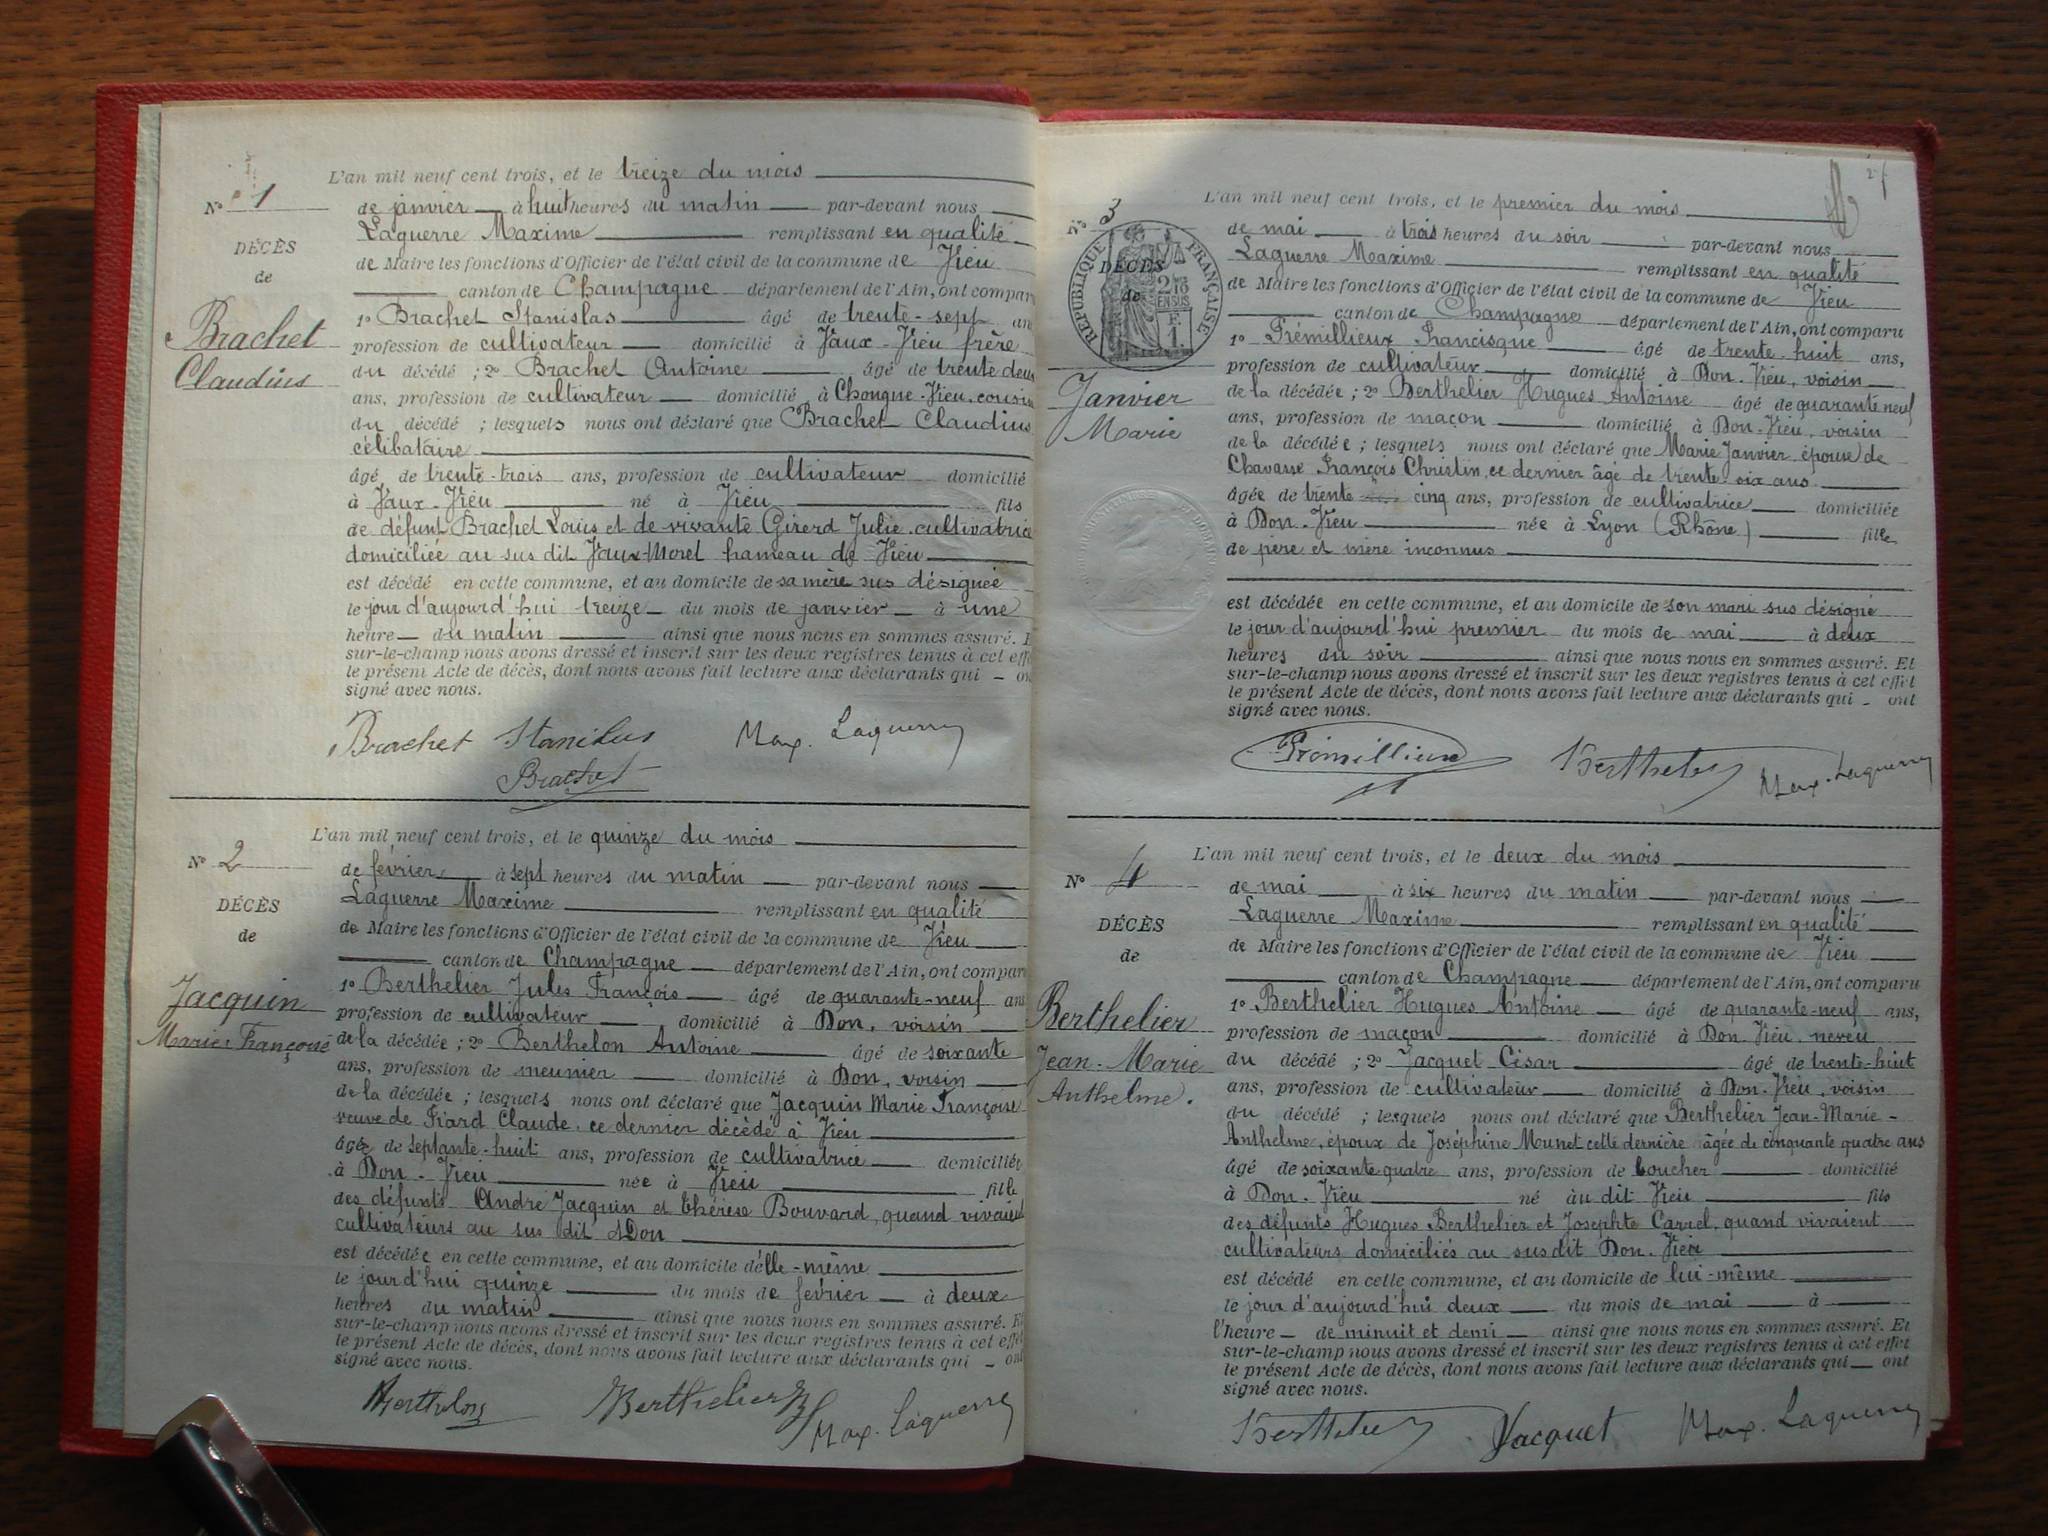 L'an mil neuf cent trois, et le treize du mois
N° 1
de janvier à huit heures du matin par-devant nous
Laguerre Maxime remplissant en qualité
DÉCÈS
de Maire les fonctions d'Officier de l'état civil de la commune de Vieu
de
canton de Champagne département de l'Ain, ont comparu
Brachet
Claudius
1° Brachet Stanislas âgé de trente-sept ans
profession de cultivateur domicilié à Vaux-Vieu frère
du décédé ; 2° Brachet Antoine âgé de trente deux
ans, profession de cultivateur domicilié à Chongne-Vieu, cousin
du décédé ; lesquels nous ont déclaré que Brachet Claudius
célibataire
âgé de trente-trois ans, profession de cultivateur domicilié
à Vaux-Vieu né à Vieu fils
de défunt Brachet Louis et de vivante Girerd Julie cultivatrice
domiciliée au sus dit Vaux-Morel hameau de Vieu
est décédé en cette commune, et au domicile de sa mère sus désignée
le jour d'aujourd'hui treize du mois de janvier à une
heure du matin ainsi que nous nous en sommes assuré. E
sur-le-champ nous avons dressé et inscrit sur les deux registres tenus à cet effe
le présent Acte de décès, dont nous avons fait lecture aux déclarants qui on
signé avec nous.
Brachet Stanislas Max. Laguerre
Brachet
L'an mil neuf cent trois, et le quinze du mois
N° 2
de février à sept heures du matin par-devant nous
Laguerre Maxime remplissant en qualité
DÉCÈS
de Maire les fonctions d'Officier de l'état civil de la commune de Vieu
de
canton de Champagne département de l'Ain, ont comparu
Jacquin
Marie Françoise
1° Berthelier Jules François âgé de quarante-neuf ans
profession de cultivateur domicilié à Don, voisin
de la décédée ; 2° Berthelon Antoine âgé de soixante
ans, profession de meunier domicilié à Don, voisin
de la décédée ; lesquels nous ont déclaré que Jacquin Marie Françoise
veuve de Fiard Claude, ce dernier décédé à Vieu
âgée de septante-huit ans, profession de cultivatrice domiciliée
à Don-Vieu née à Vieu fille
des défunts André Jacquin et Thérèse Bouvard, quand vivaient
cultivateurs au sus dit Don
est décédée en cette commune, et au domicile d'elle-même
le jour d'hui quinze du mois de février à deux
heures du matin ainsi que nous nous en sommes assuré. Et
sur-le-champ nous avons dressé et inscrit sur les deux registres tenus à cet effet
le présent Acte de décès, dont nous avons fait lecture aux déclarants qui ont
signé avec nous.
Berthelon Berthelier Max. Laguerre
L'an mil neuf cent trois, et le premier du mois
N° 3
de mai à trois heures du soir par-devant nous
Laguerre Maxime remplissant en qualité
RÉPUBLIQUE FRANÇAISE
DÉCÈS
de
de Maire les fonctions d'Officier de l'état civil de la commune de Vieu
canton de Champagne département de l'Ain, ont comparu
Janvier
Marie
1° Prémillieux Francisque âgé de trente-huit ans,
profession de cultivateur domicilié à Don-Vieu, voisin
de la décédée ; 2° Berthelier Hugues Antoine âgé de quarante neuf
ans, profession de maçon domicilié à Don-Vieu, voisin
de la décédée ; lesquels nous ont déclaré que Marie Janvier, épouse de
Chavasse François Christin, ce dernier âgé de trente six ans
âgée de trente cinq ans, profession de cultivatrice domiciliée
à Don-Vieu née à Lyon (Rhône) fille
de père et mère inconnus
est décédée en cette commune, et au domicile de son mari sus désigné
le jour d'aujourd'hui premier du mois de mai à deux
heures du soir ainsi que nous nous en sommes assuré. Et
sur-le-champ nous avons dressé et inscrit sur les deux registres tenus à cet effet
le présent Acte de décès, dont nous avons fait lecture aux déclarants qui ont
signé avec nous.
Prémillieux Berthelier Max. Laguerre
L'an mil neuf cent trois, et le deux du mois
N° 4
de mai à six heures du matin par-devant nous
Laguerre Maxime remplissant en qualité
DÉCÈS
de Maire les fonctions d'Officier de l'état civil de la commune de Vieu
de
canton de Champagne département de l'Ain, ont comparu
Berthelier
Jean-Marie
Anthelme.
1° Berthelier Hugues Antoine âgé de quarante-neuf ans,
profession de maçon domicilié à Don-Vieu, neveu
du décédé ; 2° Jacquet César âgé de trente-huit
ans, profession de cultivateur domicilié à Don-Vieu, voisin
du décédé ; lesquels nous ont déclaré que Berthelier Jean-Marie-
Anthelme, époux de Joséphine Munet cette dernière âgée de cinquante quatre ans
âgé de soixante quatre ans, profession de boucher domicilié
à Don-Vieu né au dit Vieu fils
des défunts Hugues Berthelier et Josephte Carrel, quand vivaient
cultivateurs domiciliés au susdit Don-Vieu
est décédé en cette commune, et au domicile de lui-même
le jour d'aujourd'hui deux du mois de mai à
l'heure de minuit et demi ainsi que nous nous en sommes assuré. Et
sur-le-champ nous avons dressé et inscrit sur les deux registres tenus à cet effet
le présent Acte de décès, dont nous avons fait lecture aux déclarants qui ont
signé avec nous.
Berthelier Jacquet Max. Laguerre